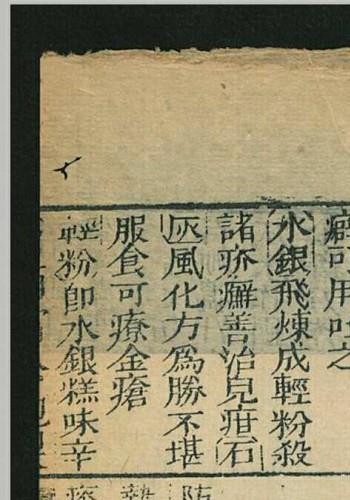 可用吐之
水銀飛煉成輕粉殺
諸疥癬善治兒疳石
灰風化方為勝不堪
服食可療金瘡
輕粉卽水銀糕味辛